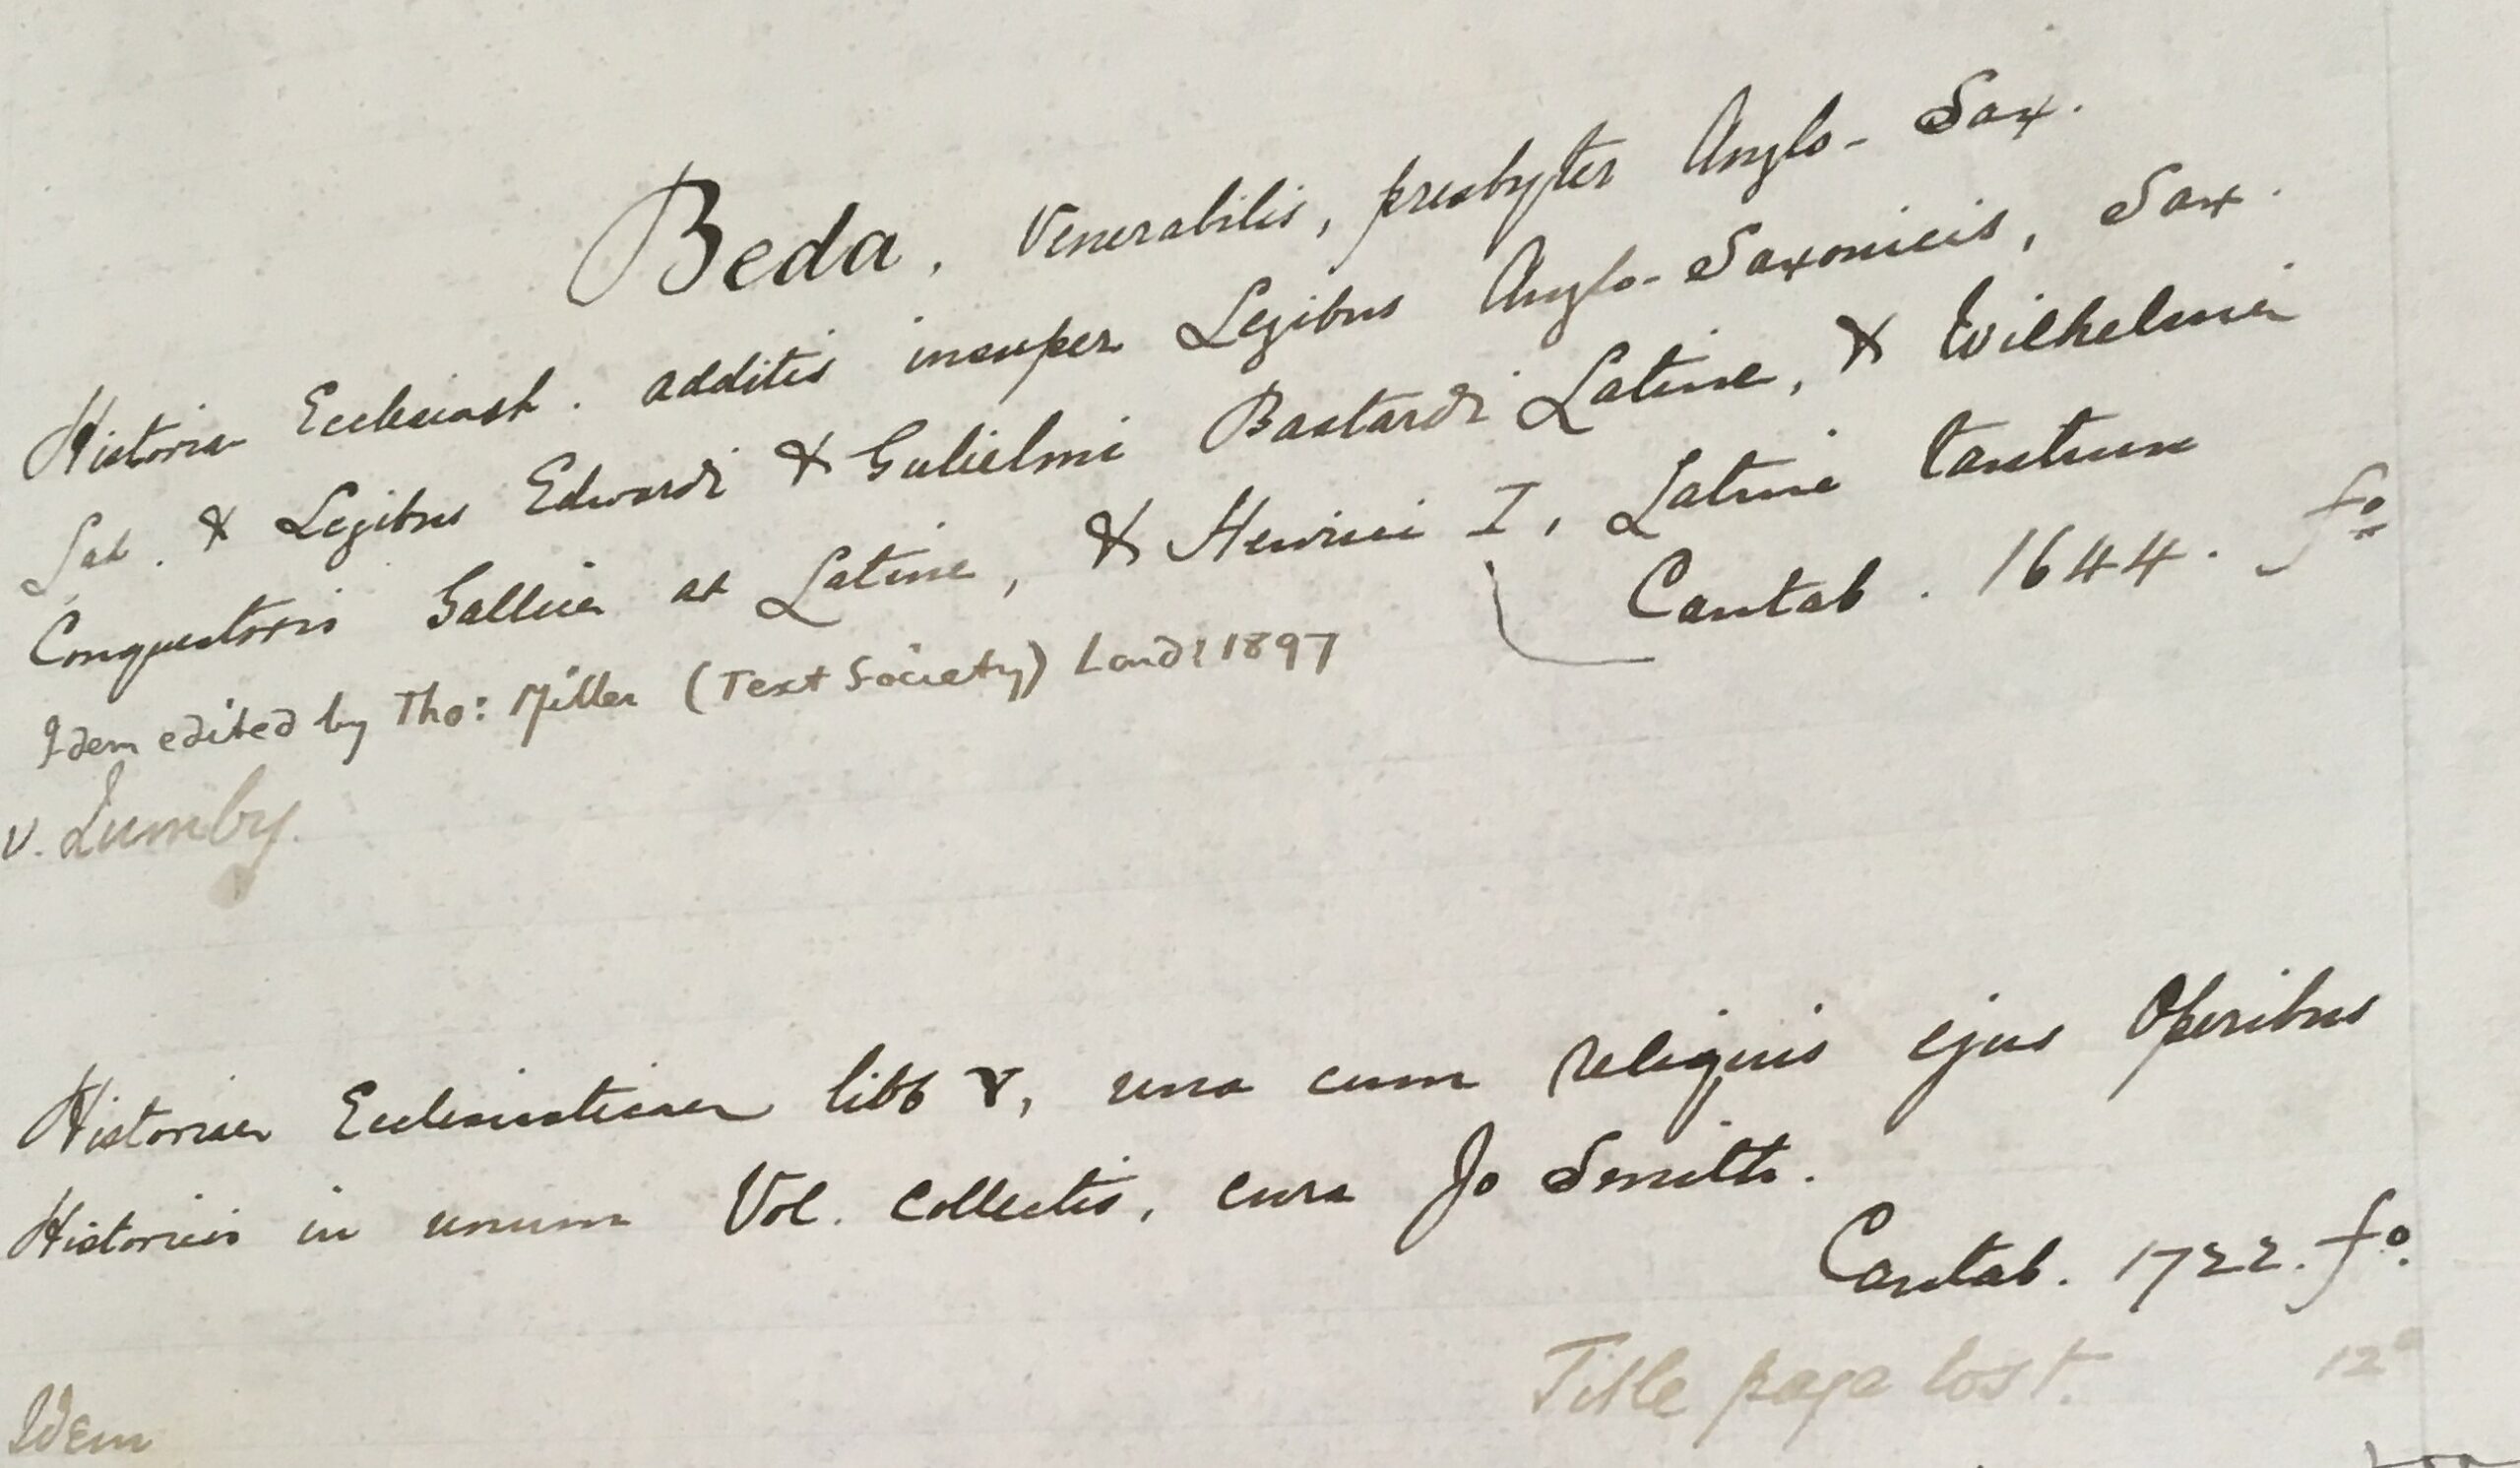 Beda, Venerabilis, presbyter Anglo-Sax.
Historia Ecclesiast. additis insuper Legibus Anglo-Saxonicis, Sax.
Lat. & Legibus Edwardi & Gulielmi Bastardi Latine, & Wilhelmi
Conquestoris Gallice et Latine, & Henrici I, Latine tantum
Cantab. 1644. fo
Idem edited by Tho: Miller (Text Society) Lond: 1897
v. Lumby.
Historiae Ecclesiasticae libb V, una cum reliquis ejus Operibus
Historicis in unum Vol. collectis, cura Jo Smith.
Cantab. 1722. fo.
Idem Title page lost. 12o